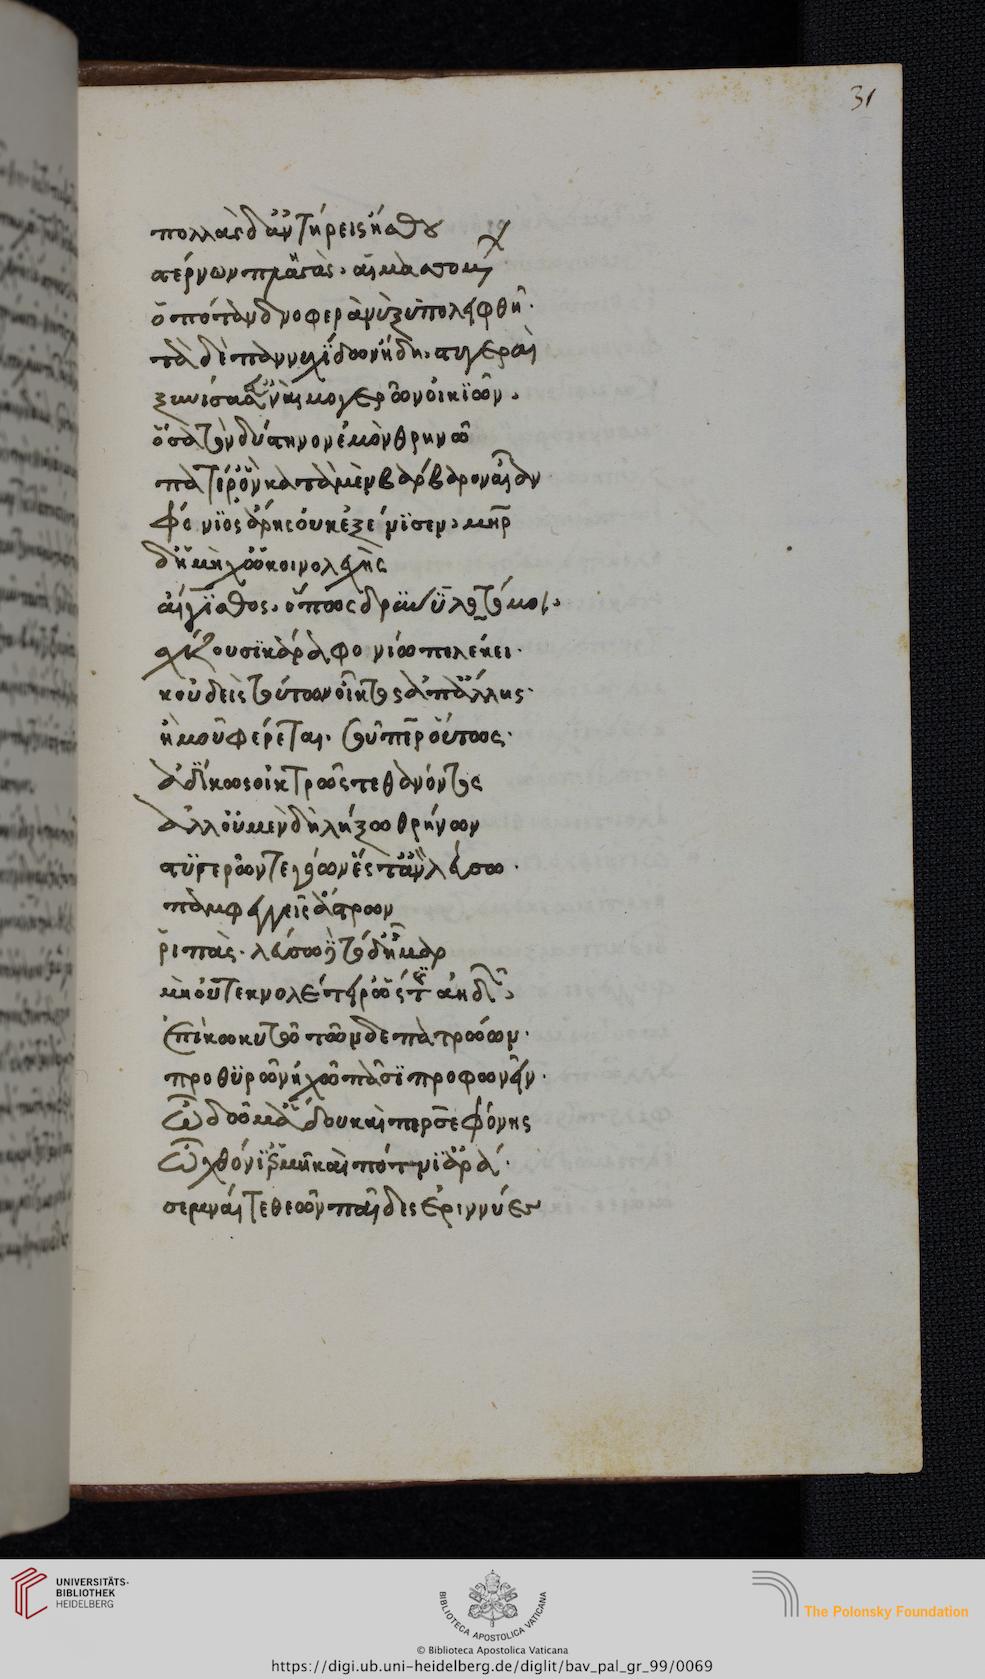 31
πολλὰς δ' ἀντήρεις ᾔσθου
στέρνων πλαγὰς αἱμασσομ
ὁπόταν δνοφερὰ νὺξ ὑπολειφθῇ·
τὰ δὲ παννυχίδων ἤδη στυγεραὶ
ξυνίσασ' εὐναὶ μογερῶν οἰκιῶν.
ὅσα τὸν δύστηνον ἐμὸν θρηνῶ
πατέρ' ὃν κατὰ μὲν βάρβαρον αἶαν
φοίνιος ἄρης οὐκ ἐξείνισεν, μηρ
δ' ἡμὴ χὠ κοινολεχὴς
αἴγισθος, ὅπως δρῦν ὑλοτόμοι,
σχίζουσι κάρα φονίῳ πελέκει·
κοὐδεὶς τούτων οἶκτος ἀπ' ἄλλης·
ἢ μοῦ φέρεται· σοῦ περ οὕτως·
ἀδίκως οἰκτρῶς τε θανόντος
ἀλλ' οὐ μὲν δὴ λήξω θρήνων
στυγερῶν τε γόων ἔς τ' ἂν λεύσσω·
παμφεγγεῖς ἄστρων
ῥιπὰς· λεύσσω δὲ τόδ' ἦμαρ
μὴ οὐ τεκνολέτειρ' ὥς τις ἀηδὼν,
ἐπὶ κωκυτῷ τῶνδε πατρῴων·
προ θυρῶν ἠχὼ πᾶσι προφωνεῖν·
ὦ δῶμ' ἀΐδου καὶ περσεφόνης
ὦ χθόνι' ἑρμῆ καὶ πότνι' ἀρά·
σεμναί τε θεῶν παῖδες ἐριννύες
UNIVERSITÄTS-
BIBLIOTHEK
HEIDELBERG
BIBLIOTECA APOSTOLICA VATICANA
The Polonsky Foundation
© Biblioteca Apostolica Vaticana
https://digi.ub.uni-heidelberg.de/diglit/bav_pal_gr_99/0069